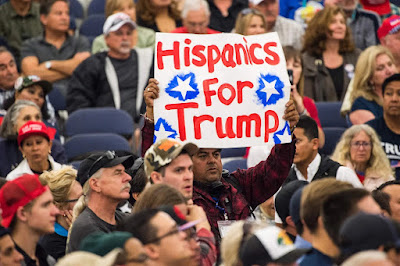 HISPANICS
FOR
TRUMP